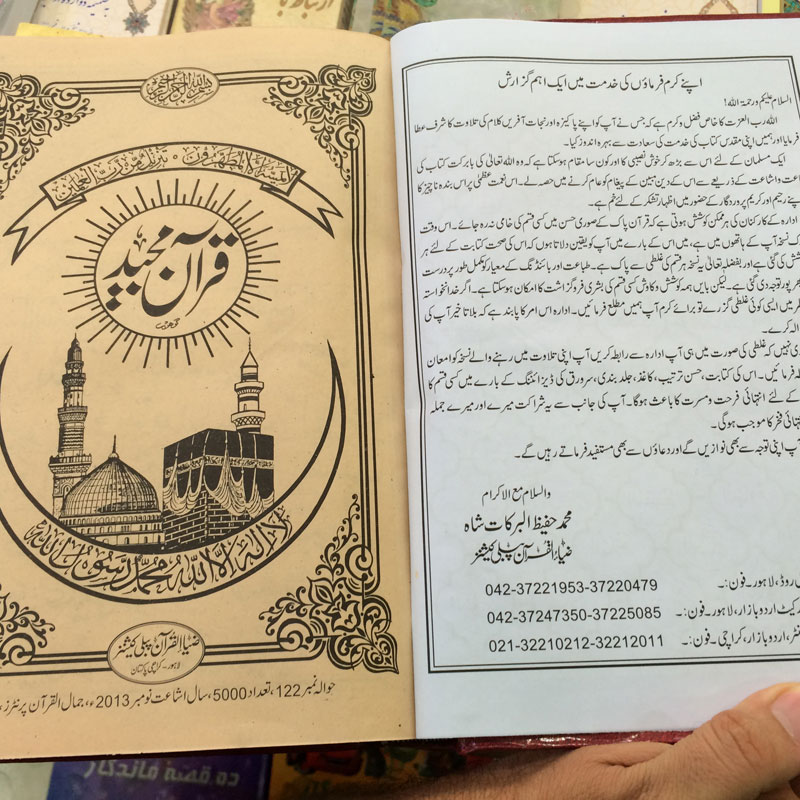 بسم اللہ الرحمن الرحیم
لَا یَمَسُّہٗ اِلَّا الْمُطَہَّرُوْنَ ۰ تَنْزِیْلٌ مِّنْ رَّبِّ الْعٰلَمِیْنَ
قرآن مجید
لا الہ الا اللہ محمد رسول اللہ
ضیاء القرآن پبلی کیشنز
لاہور - کراچی پاکستان
حوالہ نمبر 122، تعداد 5000، سال اشاعت نومبر 2013ء، جمال القرآن پرنٹرز،
اپنے کرم فرماؤں کی خدمت میں ایک اہم گزارش
السلام علیکم ورحمۃ اللہ!
اللہ رب العزت کا خاص فضل و کرم ہے کہ جس نے آپ کو اپنے پاکیزہ اور نجات آفریں کلام کی تلاوت کا شرف عطا
فرمایا اور ہمیں اپنی مقدس کتاب کی خدمت کی سعادت سے بہرہ اندوز کیا۔
ایک مسلمان کے لئے اس سے بڑھ کر خوش نصیبی کا اور کون سا مقام ہو سکتا ہے کہ وہ اللہ تعالیٰ کی بابرکت کتاب کی
و اشاعت کے ذریعے سے اس کے دین مبین کے پیغام کو عام کرنے میں حصہ لے۔ اس نعمت عظمیٰ پر اس بندہ ناچیز کا
اپنے رحیم اور کریم پروردگار کے حضور میں اظہار تشکر کے لئے خم ہے۔
ادارہ کے کارکنان کی ہر ممکن کوشش ہوتی ہے کہ قرآن پاک کے صوری حسن میں کسی قسم کی خامی نہ رہ جائے۔ اس وقت
نسخہ آپ کے ہاتھوں میں ہے، میں اس کے بارے میں آپ کو یقین دلاتا ہوں کہ اس کی صحت کتابت کے لئے ہر
کی گئی ہے اور بفضلہ تعالیٰ یہ نسخہ ہر قسم کی غلطی سے پاک ہے۔ طباعت اور بائنڈنگ کے معیار کو مکمل طور پر درست
توجہ دی گئی ہے۔ لیکن بایں ہمہ کوشش و کاوش کسی قسم کی بشری فروگزاشت کا امکان ہو سکتا ہے۔ اگر خدانخواستہ
میں ایسی کوئی غلطی گزرے تو برائے کرم آپ ہمیں مطلع فرمائیں۔ ادارہ اس امر کا پابند ہے کہ بلا تاخیر آپ کی
کرے۔
نہیں کہ غلطی کی صورت میں ہی آپ ادارہ سے رابطہ کریں آپ اپنی تلاوت میں رہنے والے نسخہ کو امعان
فرمائیں۔ اس کی کتابت، حسن ترتیب، کاغذ، جلد بندی، سرورق کی ڈیزائننگ کے بارے میں کسی قسم کا
کے لئے انتہائی فرحت و مسرت کا باعث ہوگا۔ آپ کی جانب سے یہ شراکت میرے اور میرے جملہ
فخر کا موجب ہوگی۔
آپ اپنی توجہ سے بھی نوازیں گے اور دعاؤں سے بھی مستفید فرماتے رہیں گے۔
والسلام مع الاکرام
محمد حفیظ البرکات شاہ
ضیاء القرآن پبلی کیشنز
روڈ، لاہور۔ فون:۔ 042-37221953-37220479
اردو بازار، لاہور۔ فون:۔ 042-37247350-37225085
اردو بازار، کراچی۔ فون:۔ 021-32210212-32212011
ده قصه ماندگار